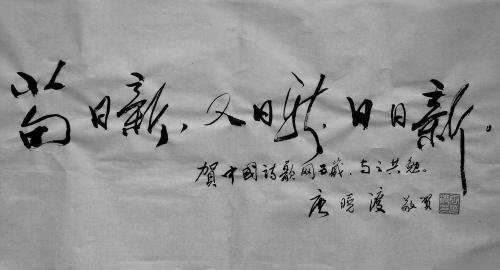 苟日新、又日新、日日新。
賀中國詩歌网五歲，与之共勉。
唐晓渡 敬贺